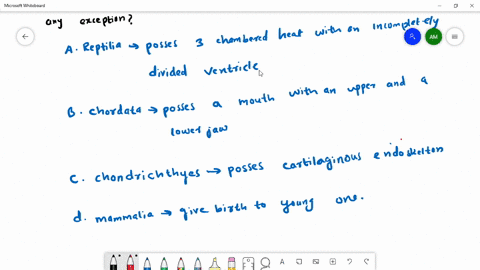 Microsoft Whiteboard
any exception?
A. Reptilia → posses 3 chambered heat with an incompletely
divided ventricle
B. chordata → posses a mouth with an upper and a
lower jaw
C. chondrichthyes → posses cartilaginous endoskelton
d. mammalia → give birth to young one.
AM